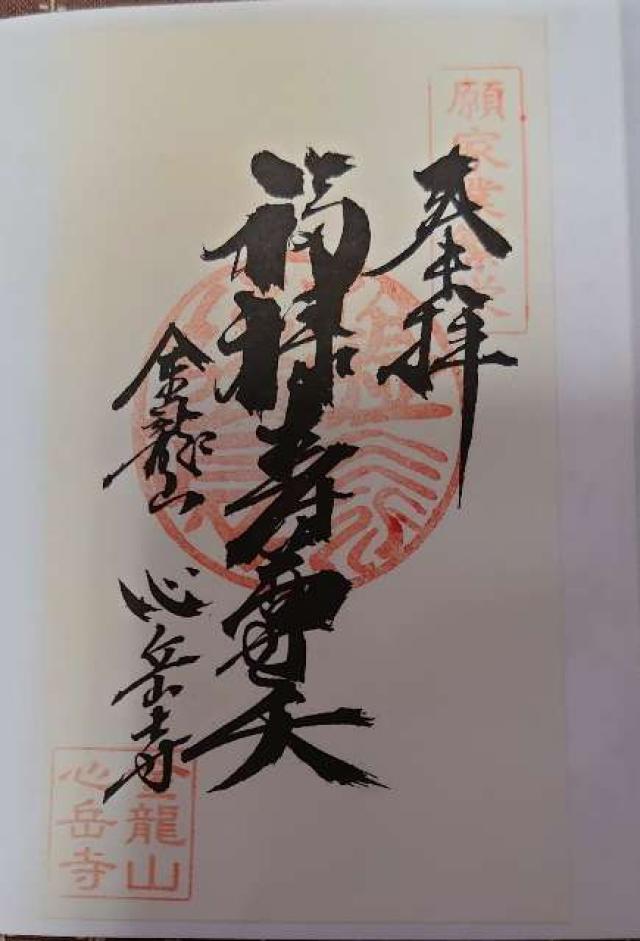 奉拝
福禄寿尊天
金龍山
心岳寺
金龍山
心岳寺